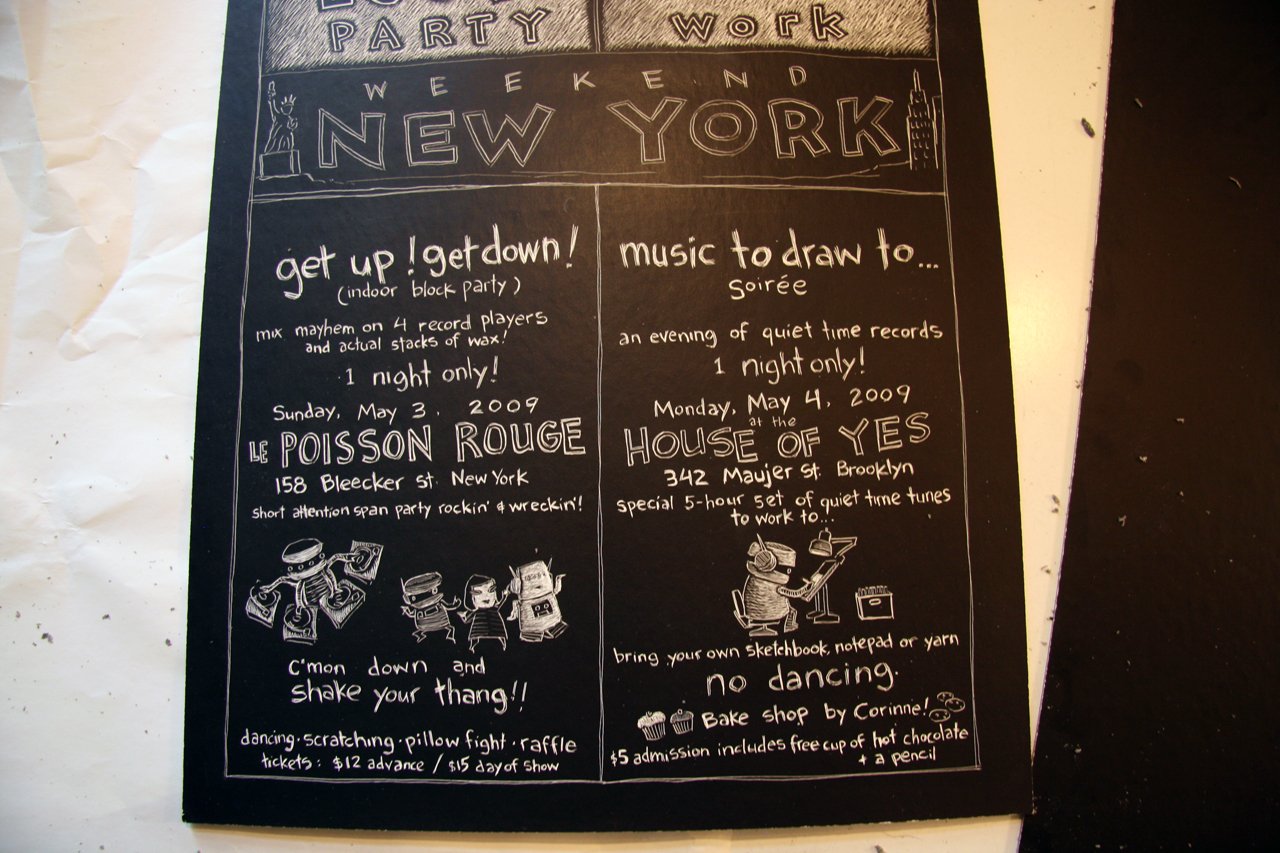 PARTY
work
WEEKEND
NEW YORK
get up! get down!
(indoor block party)
mix mayhem on 4 record players
and actual stacks of wax!
1 night only!
Sunday, May 3, 2009
LE POISSON ROUGE
158 Bleecker st. New York
short attention span party rockin' & wreckin'!
c'mon down and
shake your thang!!
dancing · scratching · pillow fight · raffle
tickets: $12 advance / $15 day of show
music to draw to...
soirée
an evening of quiet time records
1 night only!
Monday, May 4, 2009
at the
HOUSE OF YES
342 Maujer st. Brooklyn
special 5-hour set of quiet time tunes
to work to...
bring your own sketchbook, notepad or yarn
no dancing.
Bake shop by Corinne!
$5 admission includes free cup of hot chocolate
+ a pencil